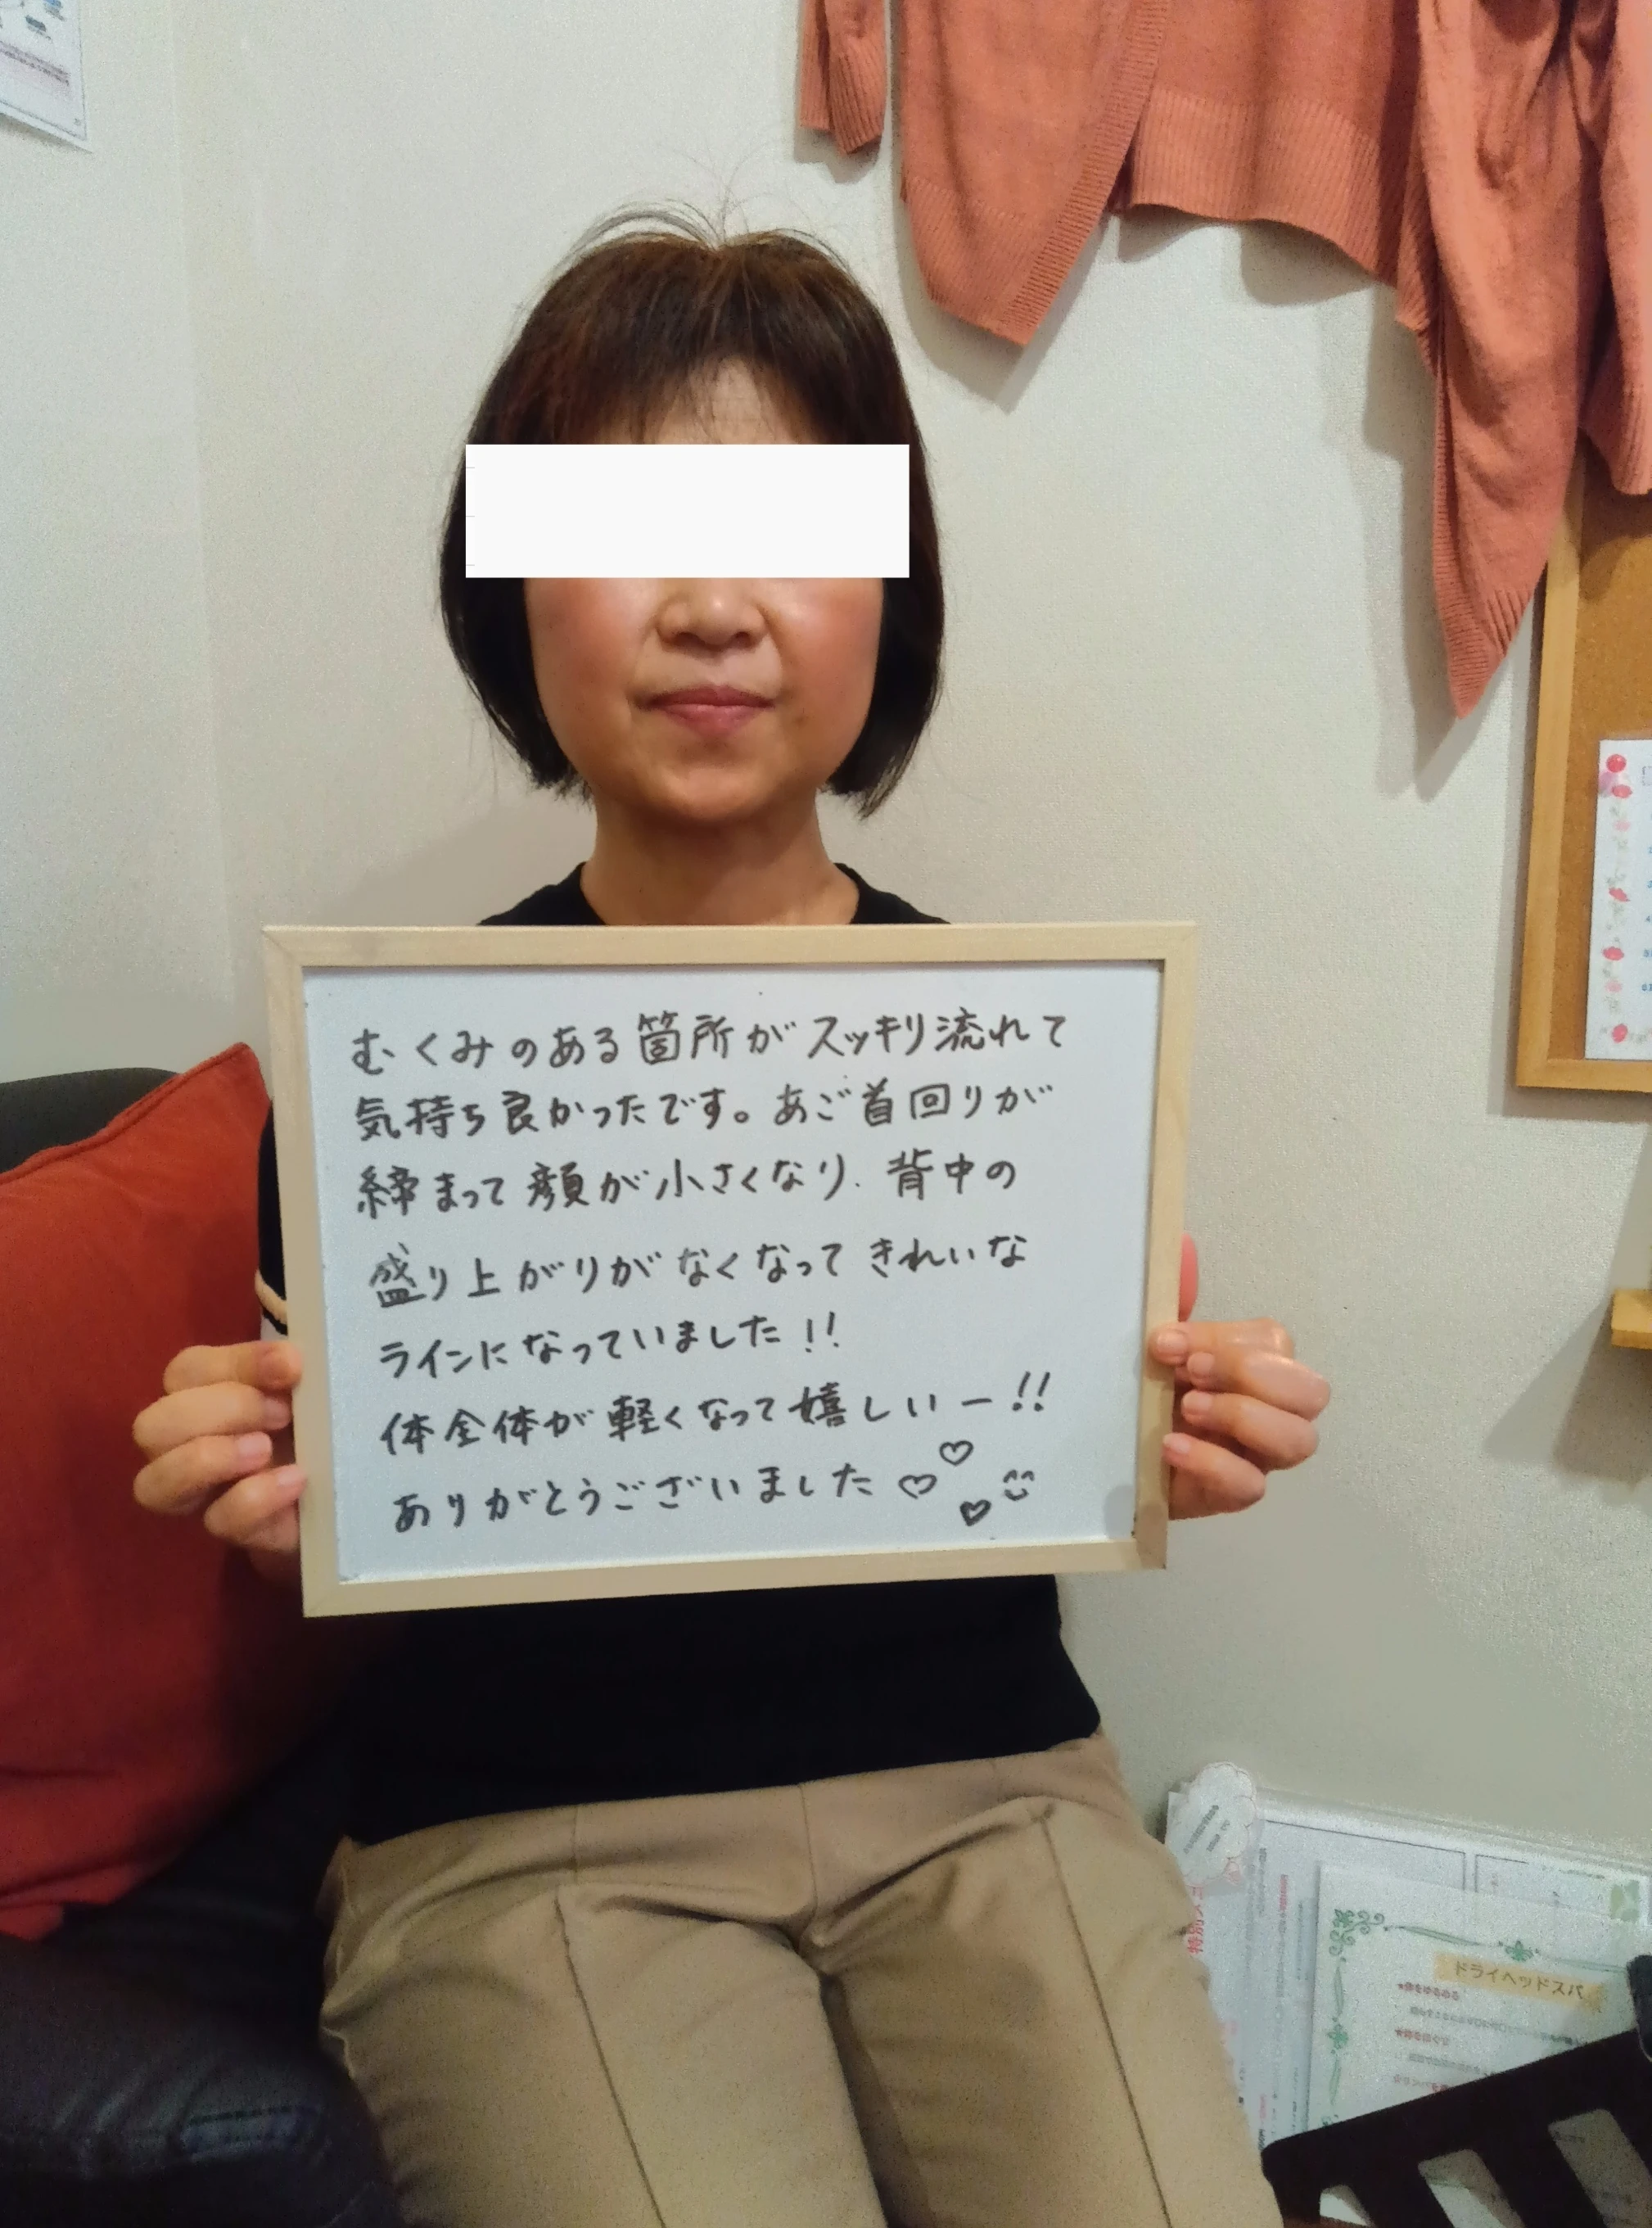 むくみのある箇所がスッキリ流れて
気持ち良かったです。あご首回りが
締まって顔が小さくなり、背中の
盛り上がりがなくなってきれいな
ラインになっていました!!
体全体が軽くなって嬉しいー!!
ありがとうございました
ドライヘッドスパ